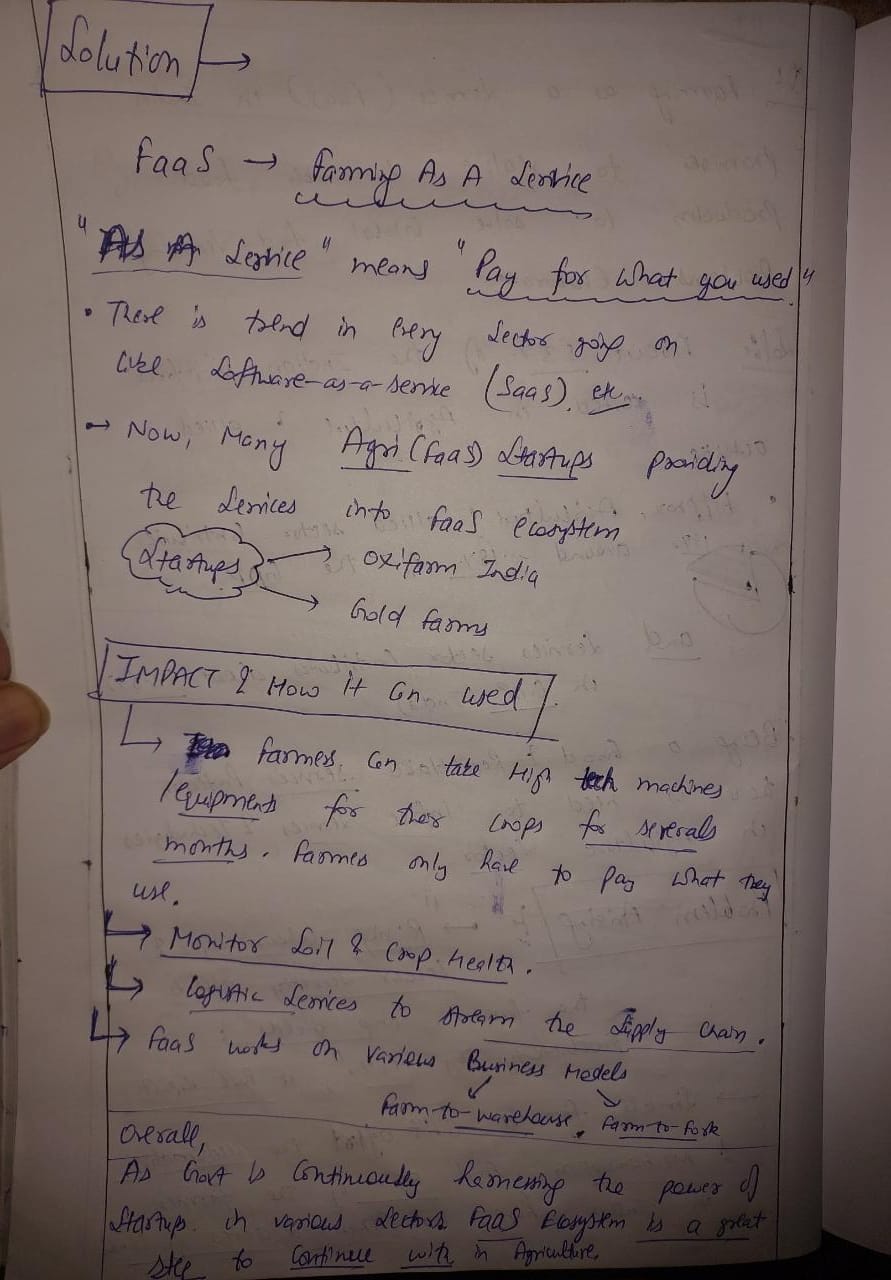 Solution →
FaaS → Farming As A Service
"As A Service" means "Pay for what you used"
• There is trend in every sector going on
like Software-as-a-service (SaaS), etc.
→ Now, Many Agri (FaaS) Startups providing
the services into FaaS ecosystem
Startups → Oxifarm India
→ Gold farms
IMPACT & How it Can used
↳ farmers can take High tech machines
/equipments for their crops for severals
months. farmers only have to pay what they
use.
↳ Monitor Soil & Crop Health.
↳ logistic services to stream the supply chain.
↳ FaaS works on various Business Models
farm-to-warehouse, farm-to-fork
Overall,
As Govt is Continuously harnessing the power of
Startups in various sectors. FaaS Ecosystem is a great
step to Continue with in Agriculture.